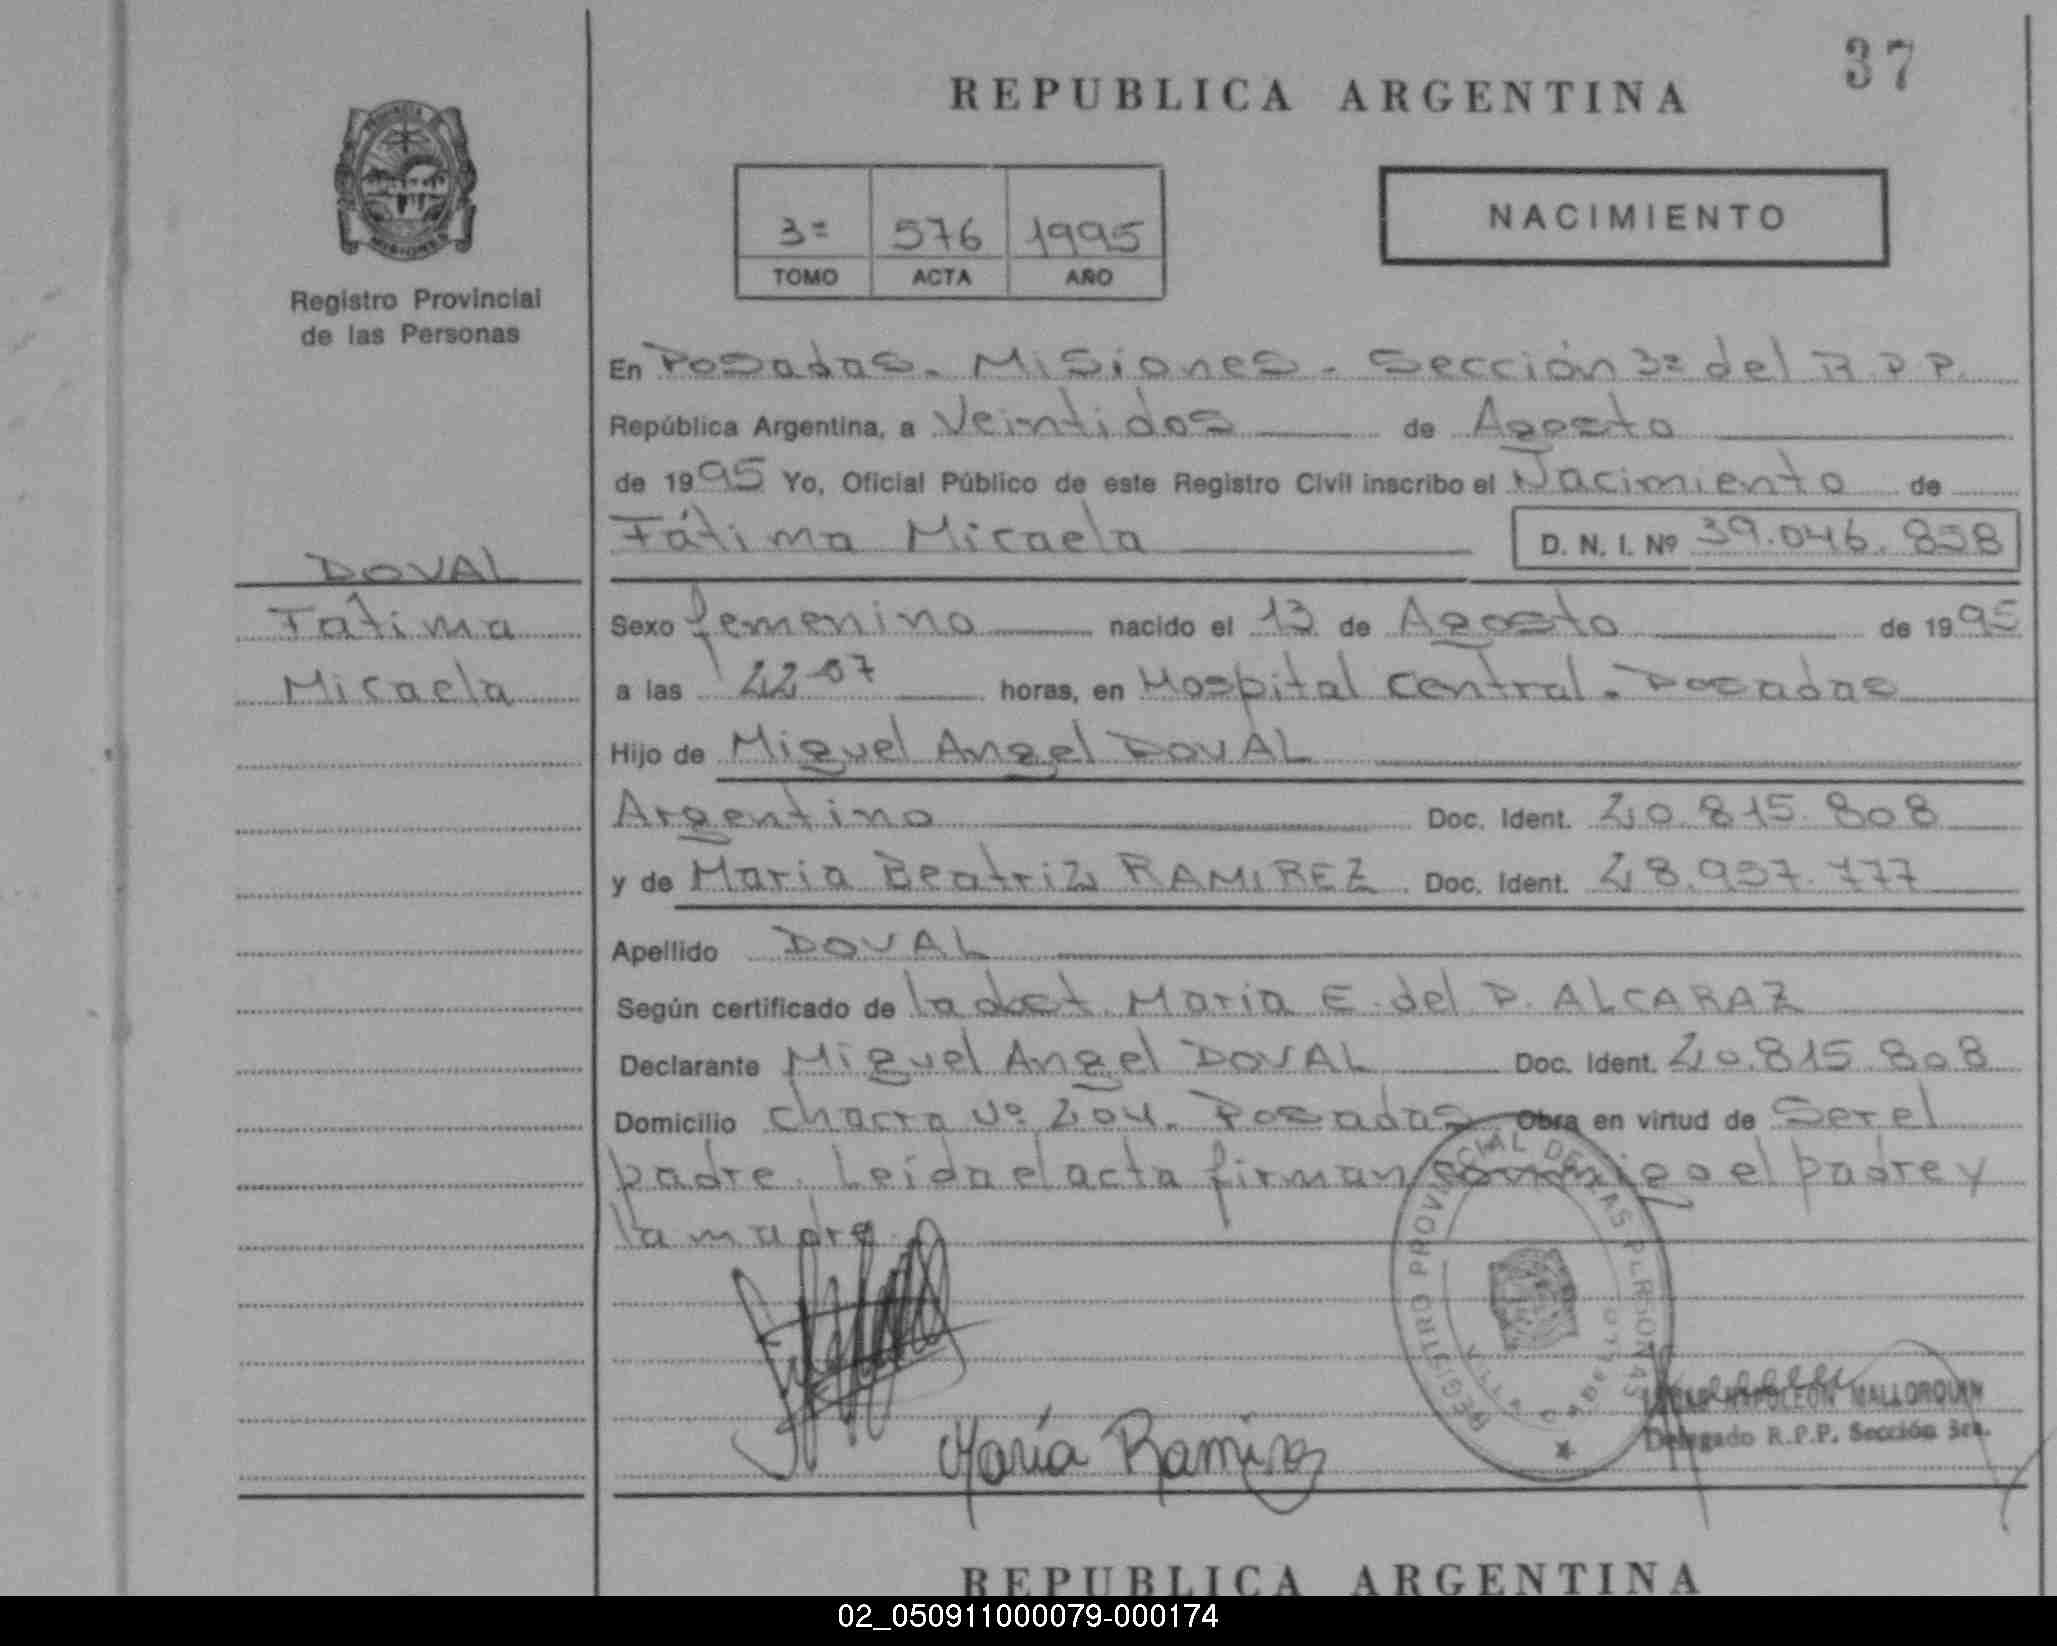 37
REPUBLICA ARGENTINA
PROVINCIA
MISIONES
Registro Provincial
de las Personas
3ª 576 1995
TOMO ACTA AÑO
NACIMIENTO
En Posadas. Misiones. Sección 3ª del R.P.P.
República Argentina, a Veintidos de Agosto
de 1995 Yo, Oficial Público de este Registro Civil inscribo el Nacimiento de
Fátima Micaela D. N. I. Nº 39.046.
DOVAL
Fátima
Micaela
Sexo femenino nacido el 13 de Agosto de 1995
a las 22-07 horas, en Hospital Central. Posadas
Hijo de Miguel Angel DOVAL
Argentino Doc. Ident. 20.815.808
y de Maria Beatriz RAMIREZ Doc. Ident.
Apellido DOVAL
Según certificado de la doct. Maria E. del P. ALCARAZ
Declarante Miguel Angel DOVAL Doc. Ident. 20.815.808
Domicilio chacra Nº 204. Posadas Obra en virtud de Ser el
padre. Leída el acta firman conmigo el padre y
la madre.
REGISTRO PROVINCIAL DE LAS PERSONAS
María Ramirez
NAPOLEON MALLORQUIN
Delegado R.P.P. Sección 3ra.
REPUBLICA ARGENTINA
02_050911000079-000174